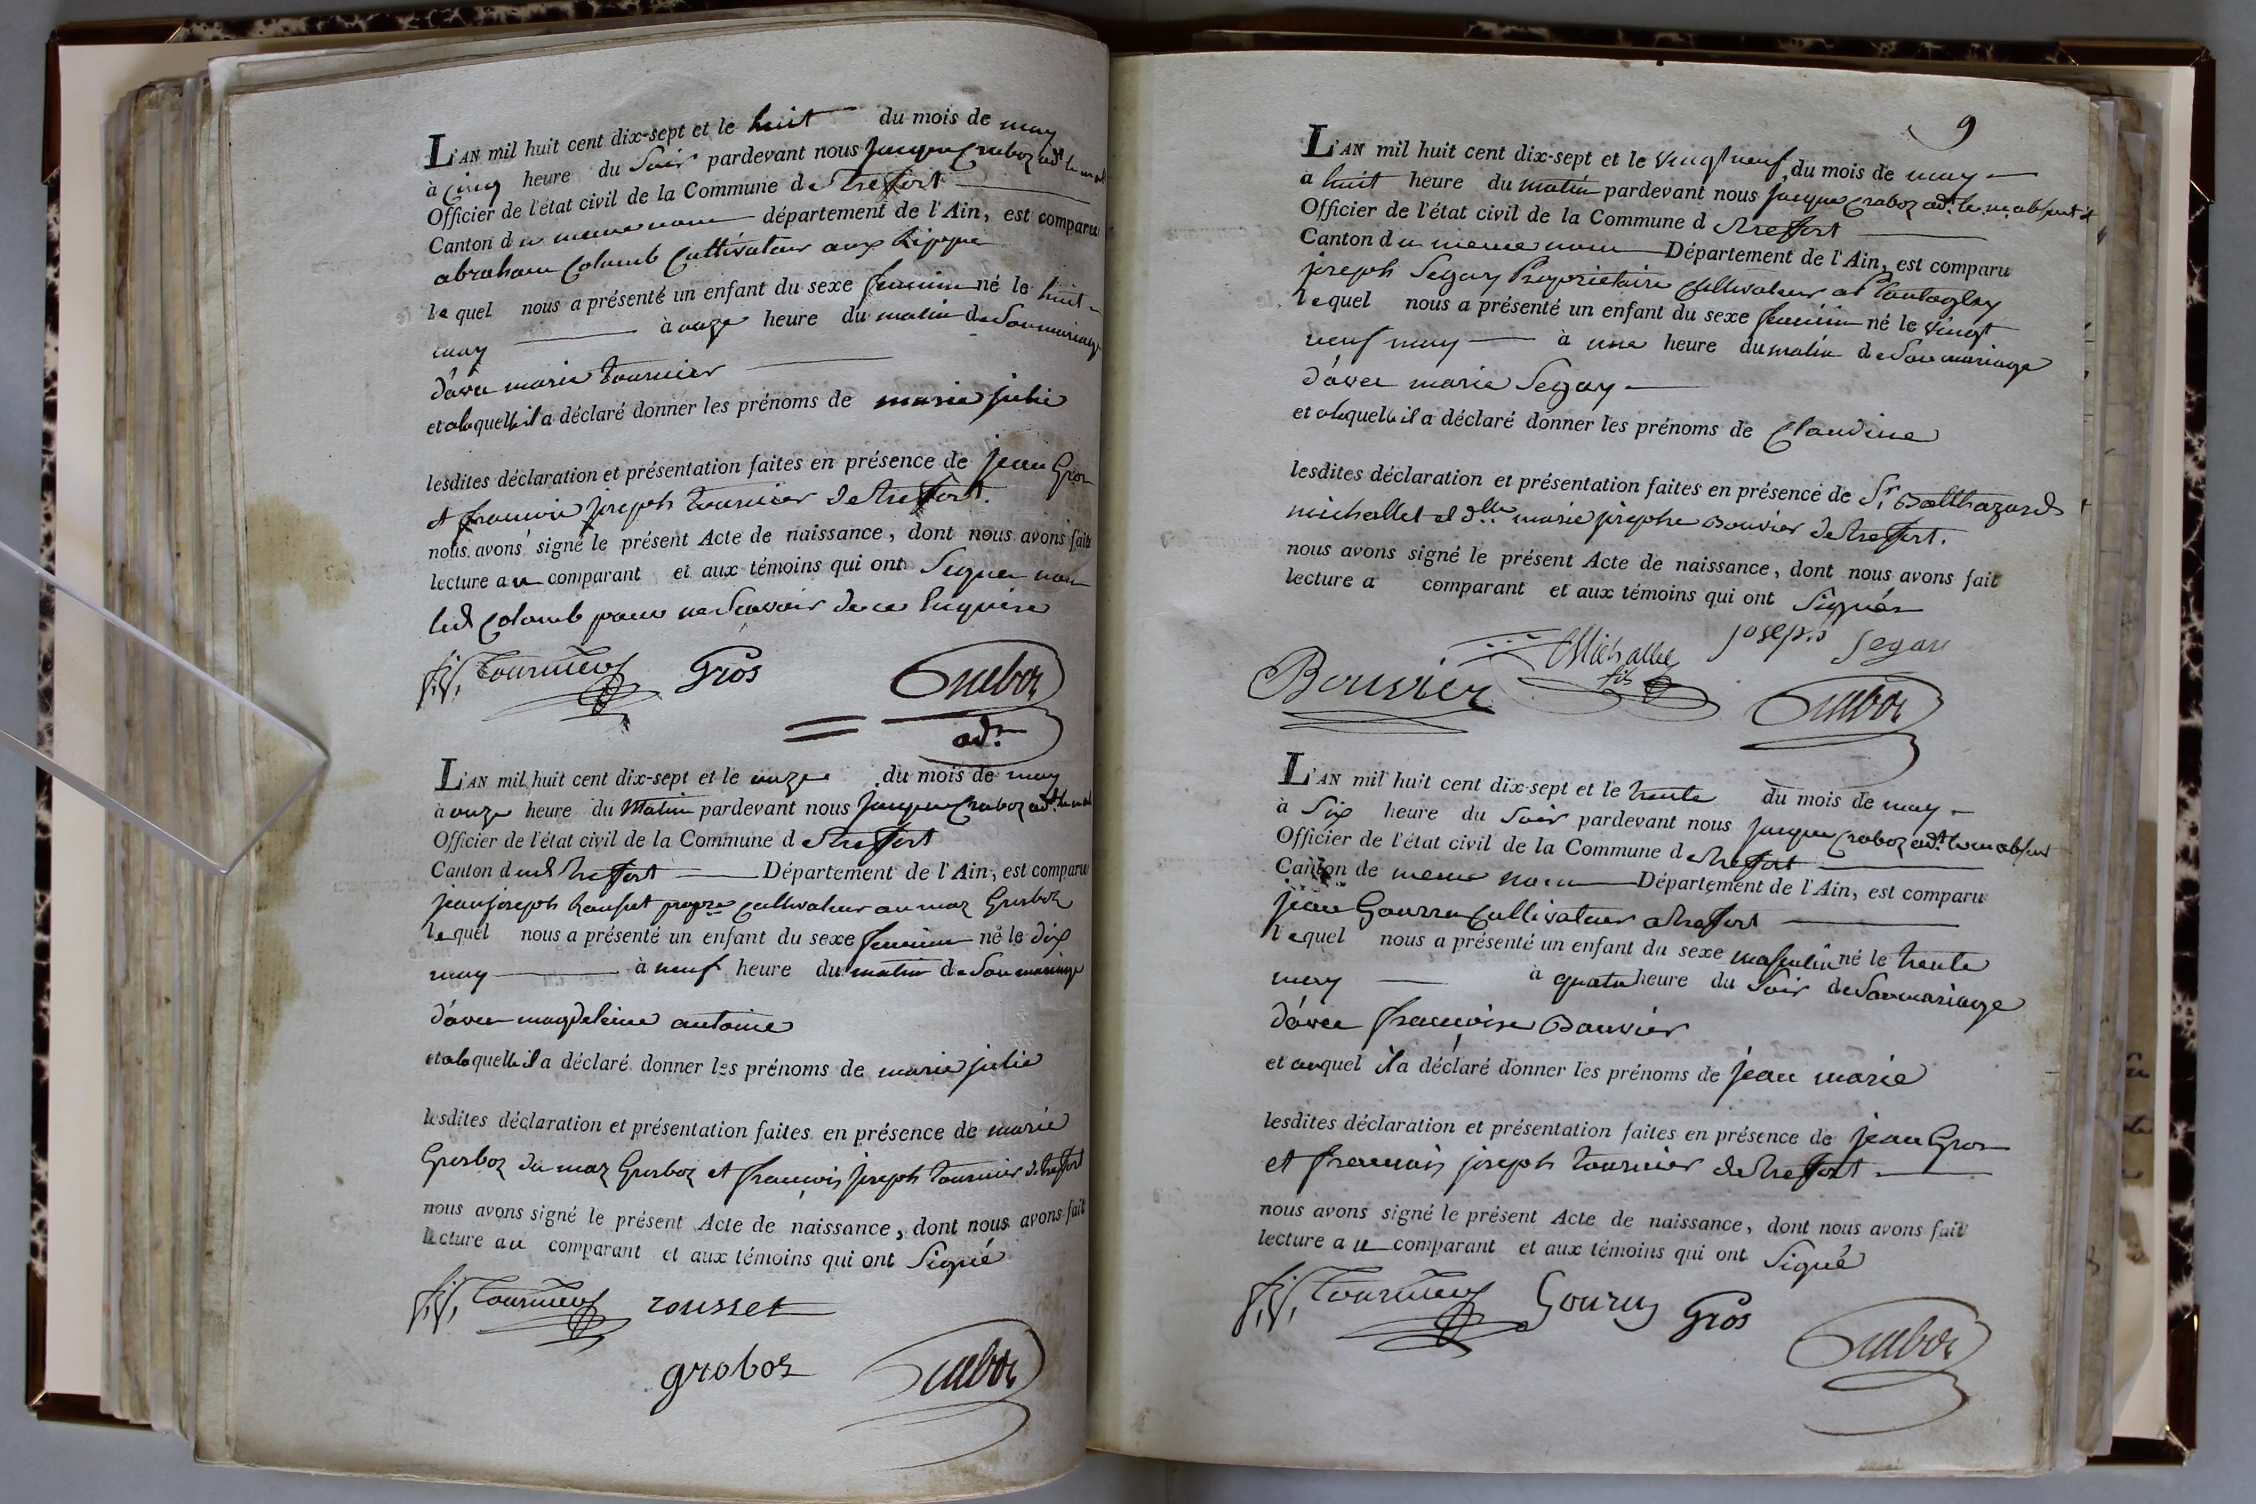 L'AN mil huit cent dix-sept et le huit du mois de may
à cinq heure du Soir pardevant nous jacque Craboz adt le mai
Officier de l'état civil de la Commune de treffort
Canton du meme nom département de l'Ain, est comparu
abraham Colomb Cultivateur aux
lequel nous a présenté un enfant du sexe feminin né le huit
may à onze heure du matin de Son mariage
d'avec marie tournier
et a laquelle il a déclaré donner les prénoms de marie julie
lesdites déclaration et présentation faites en présence de jean Gros
et francois joseph tournier de treffort.
nous avons signé le présent Acte de naissance, dont nous avons fait
lecture au comparant et aux témoins qui ont Signer non
led Colomb pour ne Scavoir de ce Enquire
fs. js. Tournier Gros Craboz
adt
L'AN mil huit cent dix-sept et le onze du mois de may
à onze heure du Matin pardevant nous jacque Craboz adt
Officier de l'état civil de la Commune de treffort
Canton dud treffort Département de l'Ain, est comparu
jean joseph Rousset propre Cultivateur au maz Grosboz
lequel nous a présenté un enfant du sexe feminin né le dix
may à neuf heure du matin de Son mariage
d'avec magdeleine antoine
et a laquelle il a déclaré donner les prénoms de marie julie
lesdites déclaration et présentation faites en présence de marie
Grosboz du maz Grosboz et françois joseph tournier de treffort
nous avons signé le présent Acte de naissance, dont nous avons fait
lecture au comparant et aux témoins qui ont Signé
fs. js. Tournier rousset
groboz Craboz
9
L'AN mil huit cent dix-sept et le vingt neuf du mois de may
a huit heure du matin pardevant nous jacque Craboz adt le m. absent
Officier de l'état civil de la Commune d treffort
Canton du meme nom Département de l'Ain, est comparu
joseph Segay Proprietaire Cultivateur a
lequel nous a présenté un enfant du sexe feminin né le vingt
neuf may à une heure du matin de Son mariage
d'avec marie Segay
et a laquelle il a déclaré donner les prénoms de Claudine
lesdites déclaration et présentation faites en présence de Sr. Balthazard
michallet et dlle marie josephe Bouvier de treffort.
nous avons signé le présent Acte de naissance, dont nous avons fait
lecture a comparant et aux témoins qui ont Signés
Bouvier Michallet fils joseph Segay
Craboz
L'AN mil huit cent dix-sept et le trente du mois de may
à Six heure du Soir pardevant nous jacque Craboz adt le m absent
Officier de l'état civil de la Commune de treffort
Canton de meme nom Département de l'Ain, est comparu
jean Gourru Cultivateur a treffort
lequel nous a présenté un enfant du sexe masculin né le trente
may à quatre heure du Soir de Son mariage
d'avec françoise Bouvier
et auquel il a déclaré donner les prénoms de jean marie
lesdites déclaration et présentation faites en présence de jean Gros
et francois joseph tournier de treffort
nous avons signé le présent Acte de naissance, dont nous avons fait
lecture au comparant et aux témoins qui ont Signé
fs. js. Tournier Gouru Gros
Craboz